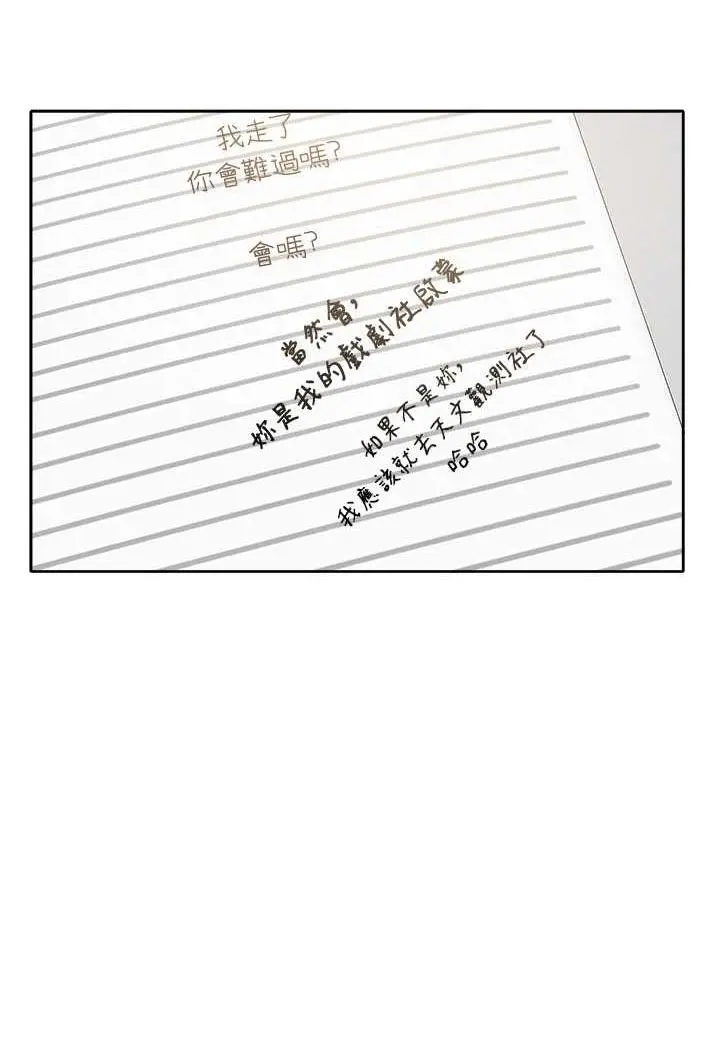 我走了
你會難過嗎?
會嗎?
當然會,
妳是我的戲劇社啟蒙
如果不是妳,
我應該就去天文觀測社了
哈哈